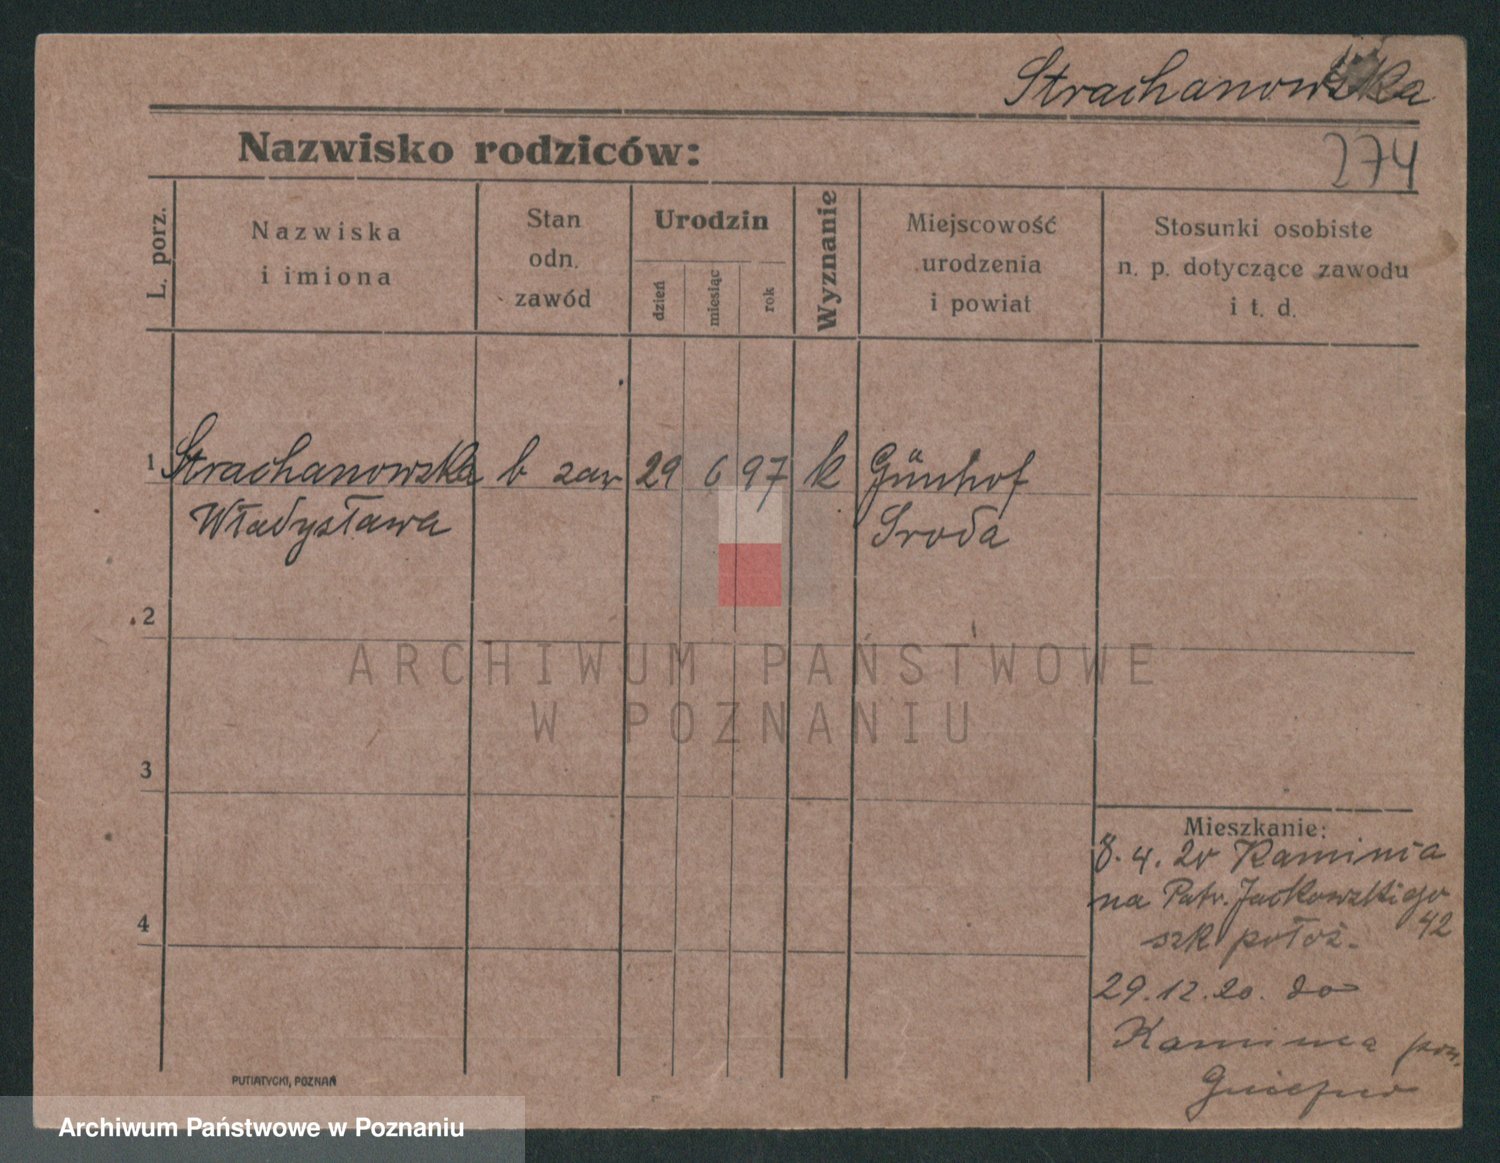 Strachanowska
274
Nazwisko rodziców:
L. porz.
Nazwiska
i imiona
Stan
odn.
zawód
Urodzin
dzień
miesiąc
rok
Wyznanie
Miejscowość
urodzenia
i powiat
Stosunki osobiste
n. p. dotyczące zawodu
i t. d.
1 Strachanowska b zaw 29 6 97 k Günhof
Władysława Sroda
2
3
4
Mieszkanie:
8. 4. 20 Kaminia
na Patr. Jackowskiego
szk położ. 42
29.12.20. do
Kaminia pow.
PUTIATYCKI, POZNAŃ
ARCHIWUM PAŃSTWOWE
W POZNANIU
Archiwum Państwowe w Poznaniu